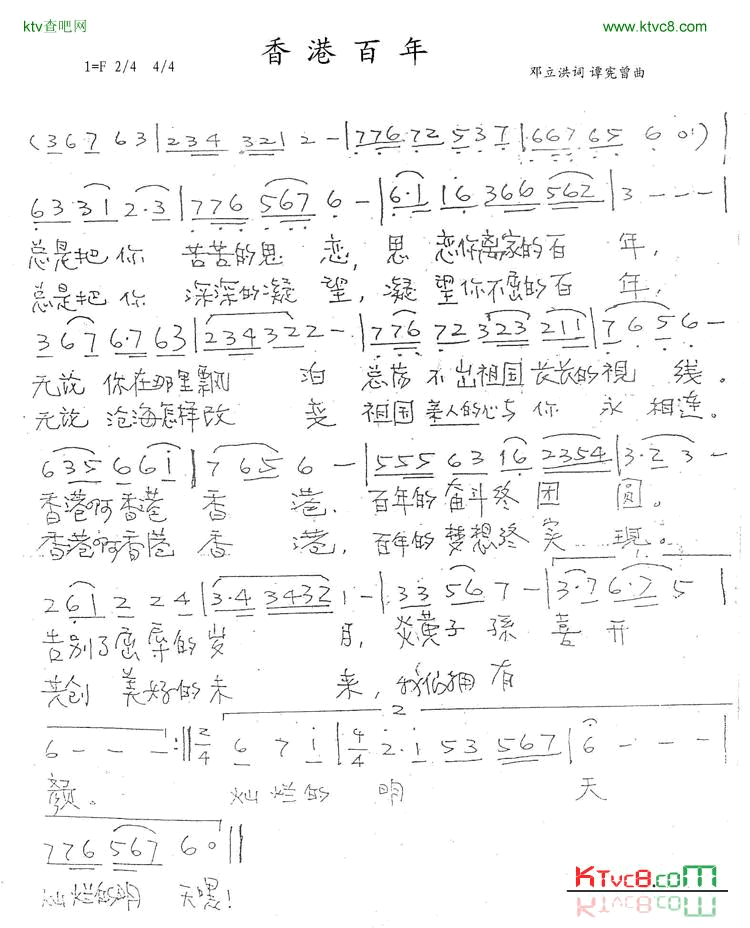 ktv查吧网 www.ktvc8.com
香港百年
1=F 2/4 4/4 邓立洪词 谭宪曾曲
(3 6 7 6 3 | 2 3 4 3 2 1 2 - | 7 7 6 7 2 5 3 7 | 6 6 7 6 5 6 0 1)
6 3·3 1 2·3 | 7 7 6 5 6 7 6 - | 6·1 1 6 3 6 6 5 6 2 | 3 - - - |
总是把你 苦苦的思 恋,思 恋你离家的百 年,
总是把你 深深的凝 望,凝 望你不屈的百 年,
3 6 7 6·7 6 3 | 2 3 4 3 2 2 - | 7 7 6 7 2 3 2 3 2 1 1 | 7 6 5 6 -
无论 你在那里飘 泊 总荡 不出祖国长长的视 线。
无论 沧海怎样改 变 祖国亲人的心与你 永 相连。
6 3 5 6 6 i | 7 6 5 6 - | 5 5 5 6 3 1 6 2 3 5 4 | 3·2 3 -
香港啊香港 香 港, 百年的奋斗终 团 圆。
香港啊香港 香 港, 百年的梦想终 实 现。
2 6 1 2 2 4 | 3·4 3 4 3 2 1 - | 3 3 5 6 7 - | 3·7 6·2 5 |
告别了屈辱的岁 月,炎黄子孙 喜开
共创 美好的未 来,我们拥有
2
6 - - - :|| 2/4 6 7 i | 4/4 2·i 5 3 5 6 7 | 6 - - - |
颜。 灿烂的 明 天
7 7 6 5 6 7 6 0 ||
灿烂的明 天嘿!
KTvc8.com